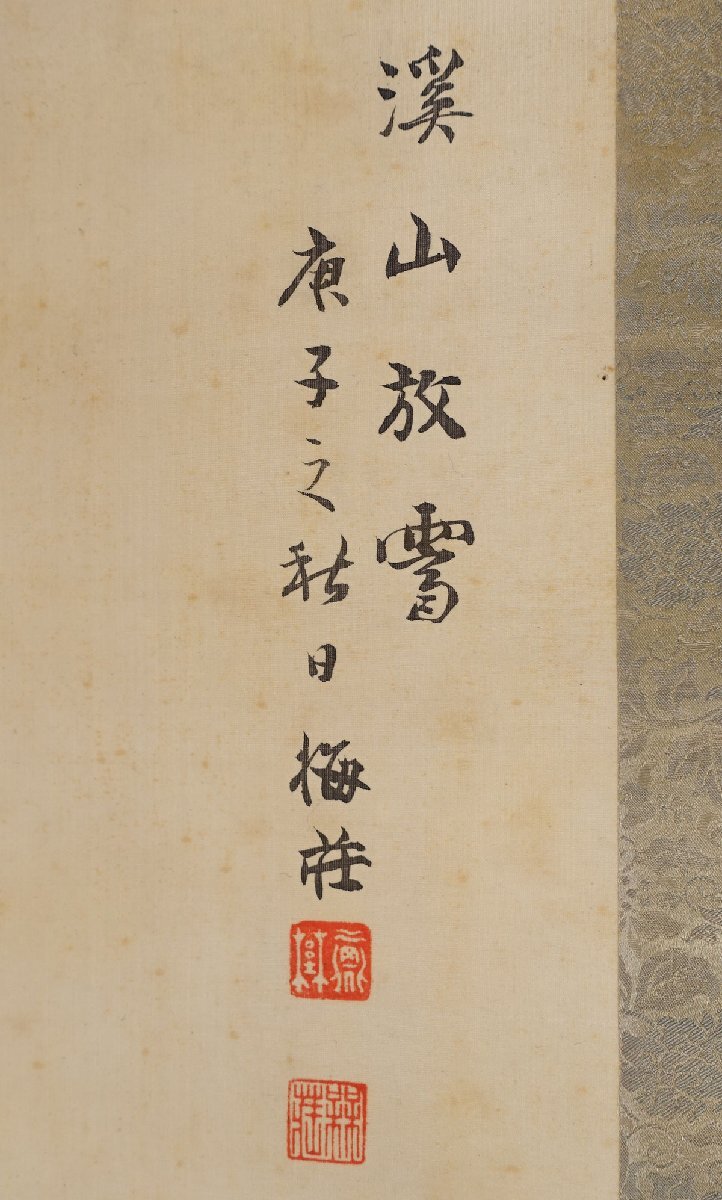 溪山放霽
庚子之秋日梅莊